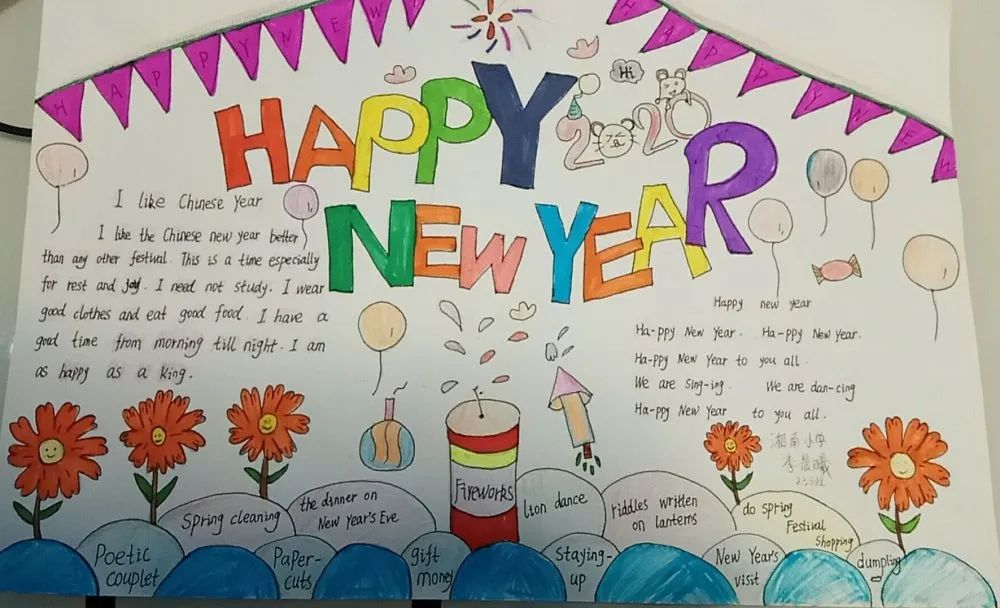 HAPPY NEW
HAPPY NEW
HAPPY
Hi
2020
NEW YEAR
I like Chinese Year
I like the Chinese new year better
than any other festival. This is a time especially
for rest and joy. I need not study. I wear
good clothes and eat good food. I have a
good time from morning till night. I am
as happy as a king.
Happy new year
Ha-ppy New Year. Ha-ppy New Year.
Ha-ppy New Year to you all.
We are sing-ing. We are dan-cing
Ha-ppy New Year to you all.
湘南小学
李晨曦
Fireworks
Spring cleaning
the dinner on
New Year's Eve
lion dance
riddles written
on lanterns
do spring
Festival
shopping
Poetic
couplet
Paper-
cuts
gift
money
staying-
up
New Year's
visit
dumpling